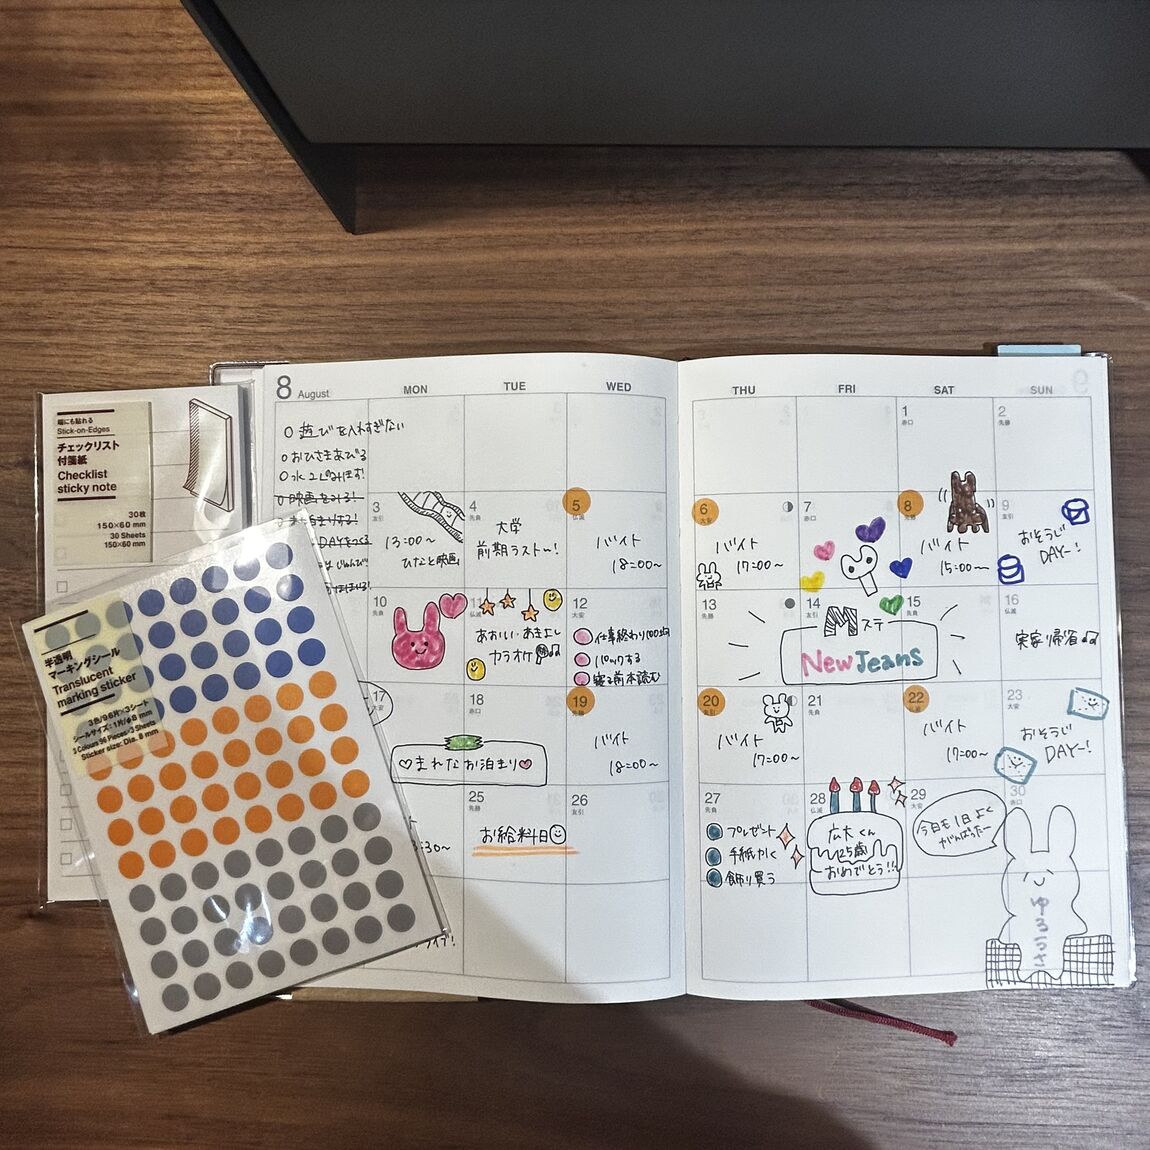 端にも貼れる
Stick-on-Edges
チェックリスト
付箋紙
Checklist
sticky note
30枚
150×60 mm
30 Sheets
150×60 mm
半透明
マーキングシール
Translucent
marking sticker
3色/96片×3シート
シールサイズ:1片/φ8 mm
3 Colours 96 Pieces×3 Sheets
Sticker size: Dia. 8 mm
8 August
MON TUE WED
THU FRI SAT SUN
○遊びを入れすぎない
○おひさまあびる
○水2Lのみほす!
○映画をみる!
DAYをつくる
1
赤口
2
先勝
3
友引
13:00~
ひなと映画
4
先負
大学
前期ラスト~!
5
仏滅
バイト
18:00~
6
大安
バイト
17:00~
7
赤口
8
先勝
バイト
15:00~
9
友引
おそうじ
DAY-!
10
先負
11
仏滅
あおい・あきよし
カラオケ
12
大安
仕事終わり
パックする
寝る前本読む
13
先勝
14
友引
15
先負
Mステ
NewJeans
16
仏滅
実家帰省
17
18
赤口
まれなお泊まり
19
先勝
バイト
18:00~
20
友引
バイト
17:00~
21
先負
22
仏滅
バイト
17:00~
23
大安
おそうじ
DAY-!
:30~
25
先勝
お給料日
26
友引
27
先負
プレゼント
手紙かく
飾り買う
28
仏滅
広大くん
25歳
おめでとう!!
29
大安
今日も1日よく
がんばったー
30
赤口
ゆるうさ
イブ!